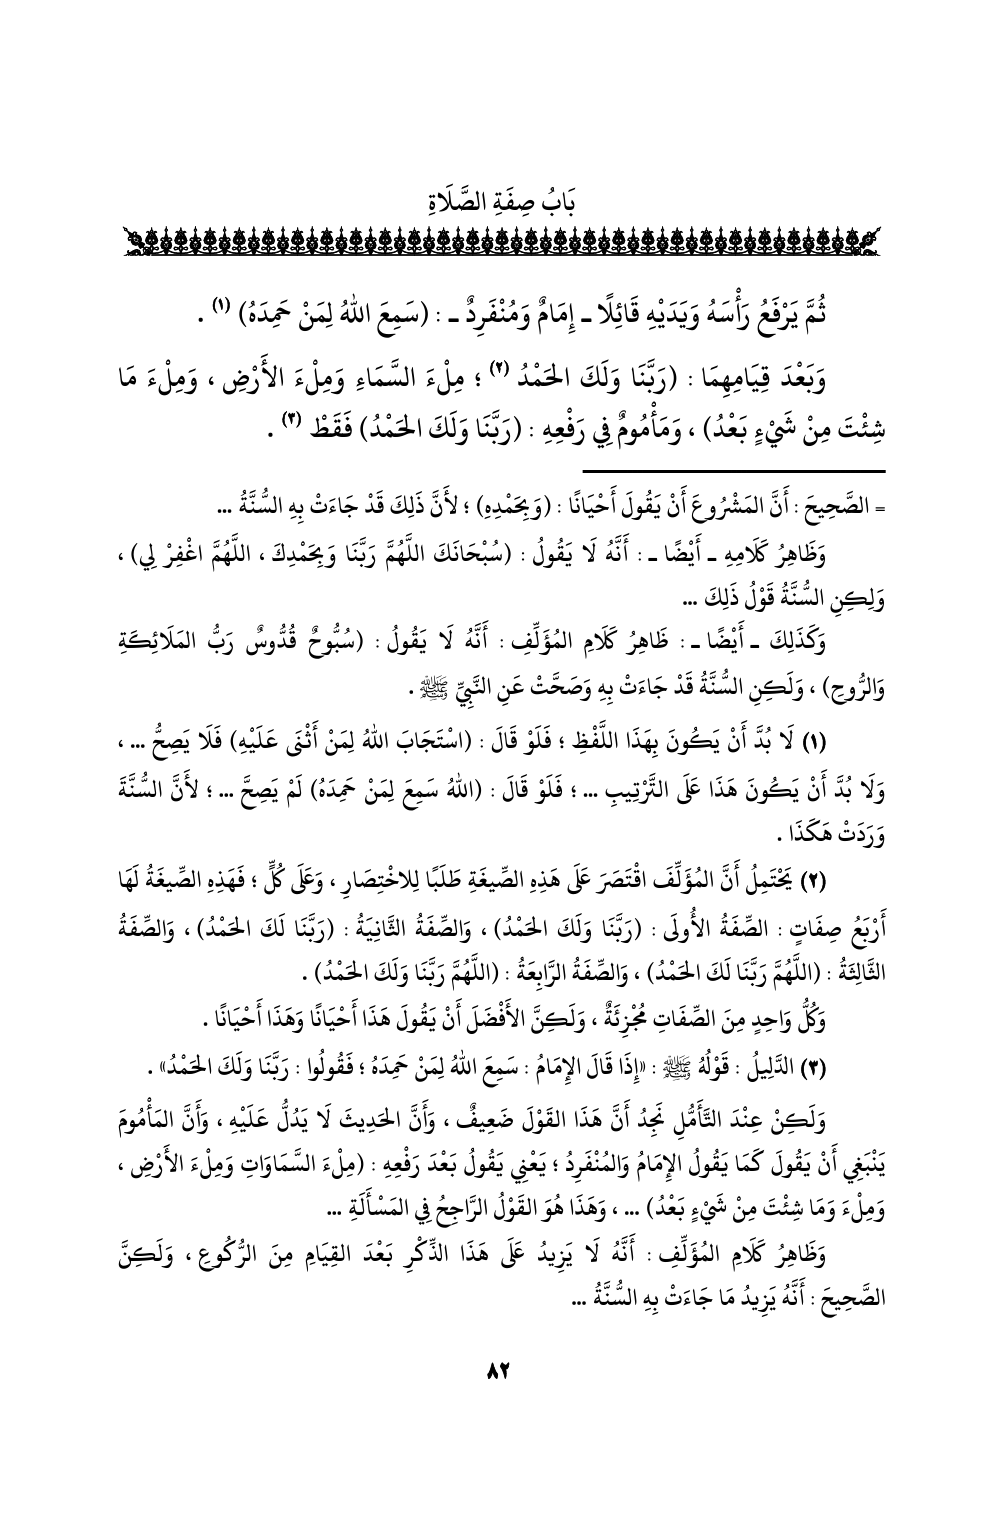 بَابُ صِفَةِ الصَّلَاةِ
ثُمَّ يَرْفَعُ رَأْسَهُ وَيَدَيْهِ قَائِلًا ـ إِمَامٌ وَمُنْفَرِدٌ ـ : (سَمِعَ اللهُ لِمَنْ حَمِدَهُ) (١) .
وَبَعْدَ قِيَامِهِمَا : (رَبَّنَا وَلَكَ الحَمْدُ (٢) ؛ مِلْءَ السَّمَاءِ وَمِلْءَ الأَرْضِ ، وَمِلْءَ مَا
شِئْتَ مِنْ شَيْءٍ بَعْدُ) ، وَمَأْمُومٌ فِي رَفْعِهِ : (رَبَّنَا وَلَكَ الحَمْدُ) فَقَطْ (٣) .
= الصَّحِيحَ : أَنَّ المَشْرُوعَ أَنْ يَقُولَ أَحْيَانًا : (وَبِحَمْدِهِ) ؛ لأَنَّ ذَلِكَ قَدْ جَاءَتْ بِهِ السُّنَّةُ ...
وَظَاهِرُ كَلَامِهِ ـ أَيْضًا ـ : أَنَّهُ لَا يَقُولُ : (سُبْحَانَكَ اللَّهُمَّ رَبَّنَا وَبِحَمْدِكَ ، اللَّهُمَّ اغْفِرْ لِي) ،
وَلِكِنِ السُّنَّةُ قَوْلُ ذَلِكَ ...
وَكَذَلِكَ ـ أَيْضًا ـ : ظَاهِرُ كَلَامِ المُؤَلِّفِ : أَنَّهُ لَا يَقُولُ : (سُبُّوحٌ قُدُّوسٌ رَبُّ المَلَائِكَةِ
وَالرُّوحِ) ، وَلَكِنِ السُّنَّةُ قَدْ جَاءَتْ بِهِ وَصَحَّتْ عَنِ النَّبِيِّ ﷺ .
(١) لَا بُدَّ أَنْ يَكُونَ بِهَذَا اللَّفْظِ ؛ فَلَوْ قَالَ : (اسْتَجَابَ اللهُ لِمَنْ أَثْنَى عَلَيْهِ) فَلَا يَصِحُّ ... ،
وَلَا بُدَّ أَنْ يَكُونَ هَذَا عَلَى التَّرْتِيبِ ... ؛ فَلَوْ قَالَ : (اللهُ سَمِعَ لِمَنْ حَمِدَهُ) لَمْ يَصِحَّ ... ؛ لأَنَّ السُّنَّةَ
وَرَدَتْ هَكَذَا .
(٢) يَحْتَمِلُ أَنَّ المُؤَلِّفَ اقْتَصَرَ عَلَى هَذِهِ الصِّيغَةِ طَلَبًا لِلاخْتِصَارِ ، وَعَلَى كُلٍّ ؛ فَهَذِهِ الصِّيغَةُ لَهَا
أَرْبَعُ صِفَاتٍ : الصِّفَةُ الأُولَى : (رَبَّنَا وَلَكَ الحَمْدُ) ، وَالصِّفَةُ الثَّانِيَةُ : (رَبَّنَا لَكَ الحَمْدُ) ، وَالصِّفَةُ
الثَّالِثَةُ : (اللَّهُمَّ رَبَّنَا لَكَ الحَمْدُ) ، وَالصِّفَةُ الرَّابِعَةُ : (اللَّهُمَّ رَبَّنَا وَلَكَ الحَمْدُ) .
وَكُلُّ وَاحِدٍ مِنَ الصِّفَاتِ مُجْزِئَةٌ ، وَلَكِنَّ الأَفْضَلَ أَنْ يَقُولَ هَذَا أَحْيَانًا وَهَذَا أَحْيَانًا .
(٣) الدَّلِيلُ : قَوْلُهُ ﷺ : «إِذَا قَالَ الإِمَامُ : سَمِعَ اللهُ لِمَنْ حَمِدَهُ ؛ فَقُولُوا : رَبَّنَا وَلَكَ الحَمْدُ» .
وَلَكِنْ عِنْدَ التَّأَمُّلِ نَجِدُ أَنَّ هَذَا القَوْلَ ضَعِيفٌ ، وَأَنَّ الحَدِيثَ لَا يَدُلُّ عَلَيْهِ ، وَأَنَّ المَأْمُومَ
يَنْبَغِي أَنْ يَقُولَ كَمَا يَقُولُ الإِمَامُ وَالمُنْفَرِدُ ؛ يَعْنِي يَقُولُ بَعْدَ رَفْعِهِ : (مِلْءَ السَّمَاوَاتِ وَمِلْءَ الأَرْضِ ،
وَمِلْءَ وَمَا شِئْتَ مِنْ شَيْءٍ بَعْدُ) ... ، وَهَذَا هُوَ القَوْلُ الرَّاجِحُ فِي المَسْأَلَةِ ...
وَظَاهِرُ كَلَامِ المُؤَلِّفِ : أَنَّهُ لَا يَزِيدُ عَلَى هَذَا الذِّكْرِ بَعْدَ القِيَامِ مِنَ الرُّكُوعِ ، وَلَكِنَّ
الصَّحِيحَ : أَنَّهُ يَزِيدُ مَا جَاءَتْ بِهِ السُّنَّةُ ...
٨٢